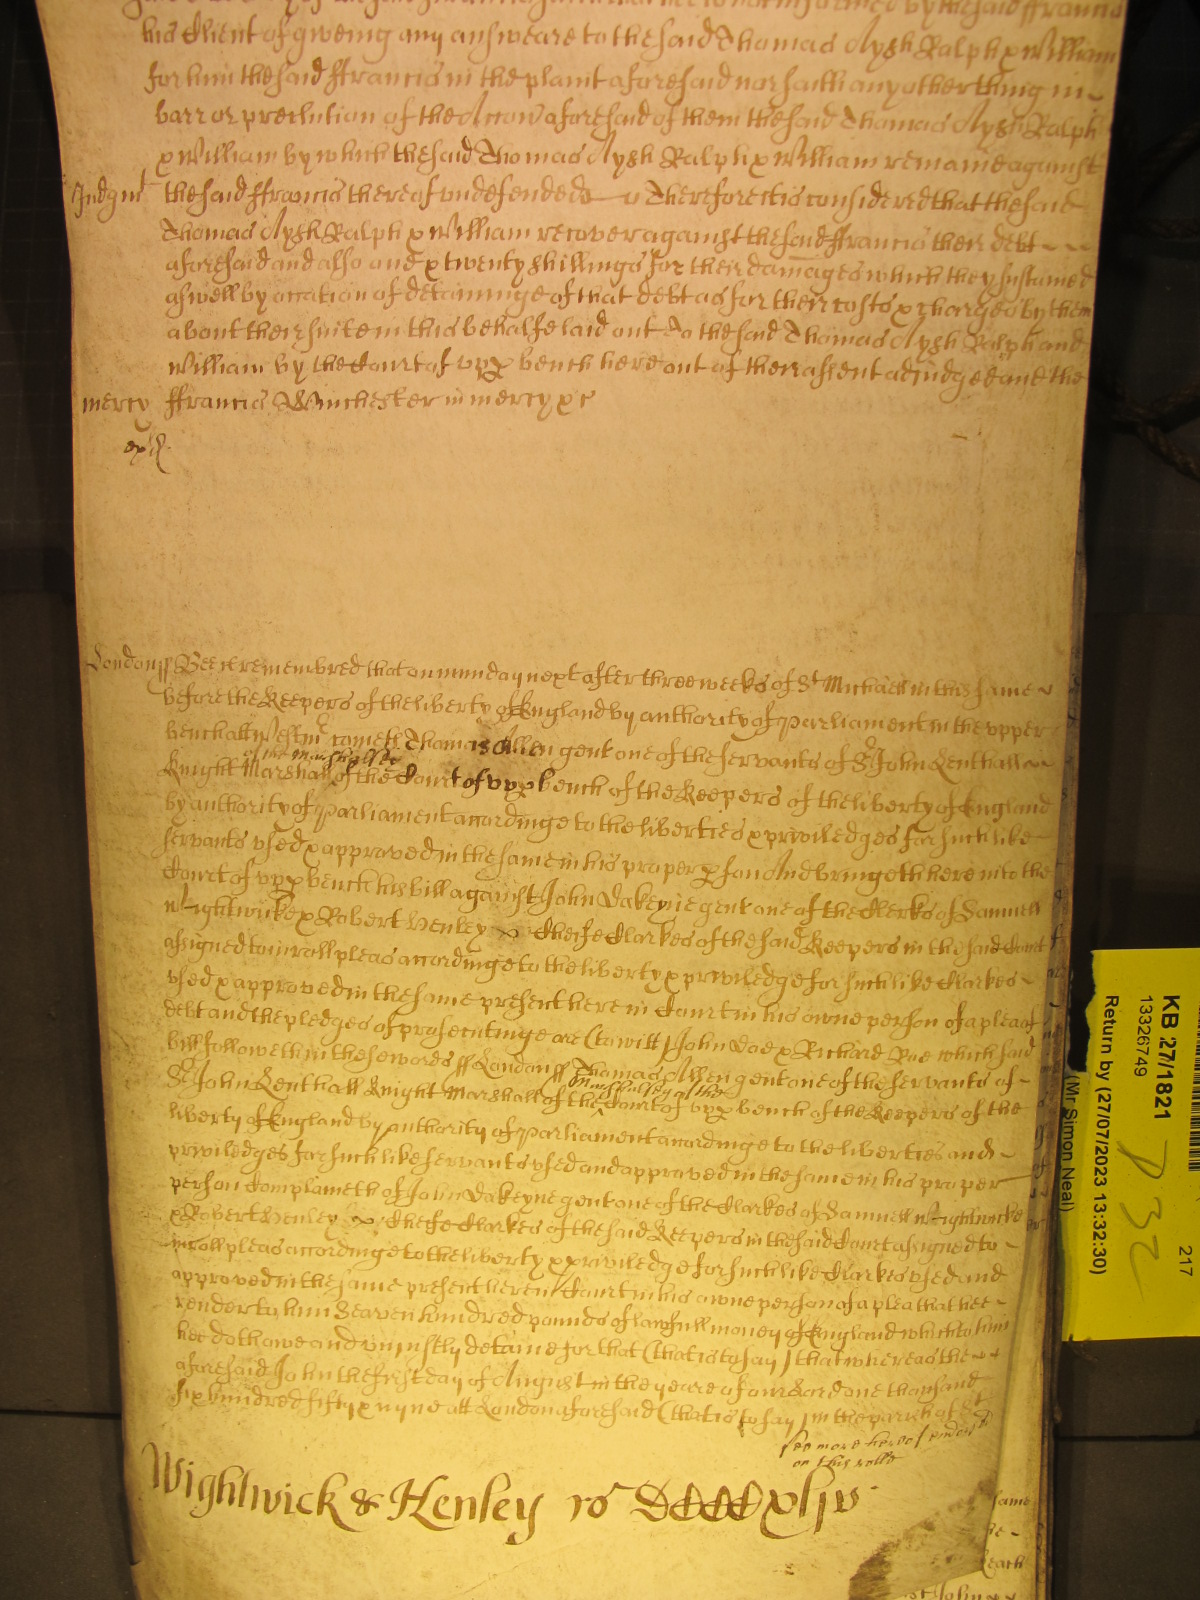 his Client of giveing any answeare to the said Thomas Aysh Ralph & William
for him the said ffrancis in the plaint aforesaid nor saith any other thing in
barr or preclution of the Accon aforesaid of them the said Thomas Aysh Ralph
& William by which the said Thomas Aysh Ralph & William remaine against
Judgmt the said ffrancis thereof undefended Therefore itis considered that the said
Thomas Aysh Ralph & William recover against the said ffrancis their debt
aforesaid and also and & twenty shillings for their damages which they sustained
aswell by occation of detaininge of that debt as for their costs & charges by them
about their suite in this behalfe laid out to the said Thomas Aysh Ralph and
William by the Court of vpp bench here out of their assent adjudged and the
mercy ffrancis Winchester in mercy &c
London ss Bee it remembred that on munday next after three weeks of St Michaell in this same
before the Keepers of the liberty of England by authority of Parliament in the vpper
bench att Westmr cometh Thomas Allen gent one of the servants of Sr John Lenthall
of the Marshalsey
Knight Marshall of the Court of vpp bench of the Keepers of the liberty of England
by authority of Parliament accordinge to the liberties & priviledges for such like
servants vsed & approved in the same in his proper pson And bringeth here into the
Court of vpp bench his bill against John Dakeyne gent one of the Clerks of Samuell
Wightwicke & Robert Henley Cheife Clarkes of the said Keepers in the said Court
assigned to inroll pleas accordinge to the liberty & priviledge for such like Clarkes
vsed & approved in the same present here in Court in his owne person of a plea of
debt and the pledges of prosecutinge are (to witt) John Doe & Richard Roe which said
bill followeth in these words ss London ss Thomas Allen gent one of the servants of
Marshallsey of the
Sr John Lenthall Knight Marshall of the Court of vpp bench of the Keepers of the
liberty of England by authority of Parliament accordinge to the liberties and
priviledges for such like servants vsed and approved in the same in his proper
person Complaineth of John Dakeyne gent one of the Clarkes of Samuell Wightwicke
& Robert Henley Cheife Clarkes of the said Keepers in the said Court assigned to
inroll pleas accordinge to the liberty & priviledge for such like Clarkes vsed and
approved in the same present here in Court in his owne person of a plea that hee
render to him Seaven hundred pounds of lawfull money of England which to him
hee doth owe and uniustly detaine for that (that is to say) that whereas the
aforesaid John the first day of August in the yeare of our Lord one thousand
six hundred fifty & nyne att London aforesaid (that is to say) in the parish of St
see more hereof
on this rolle
Wightwick & Henley ro DCCCCxliv
KB 27/1821
13326749
Return by (27/07/2023 13:32:30)
(Mr Simon Neal)
217
D32